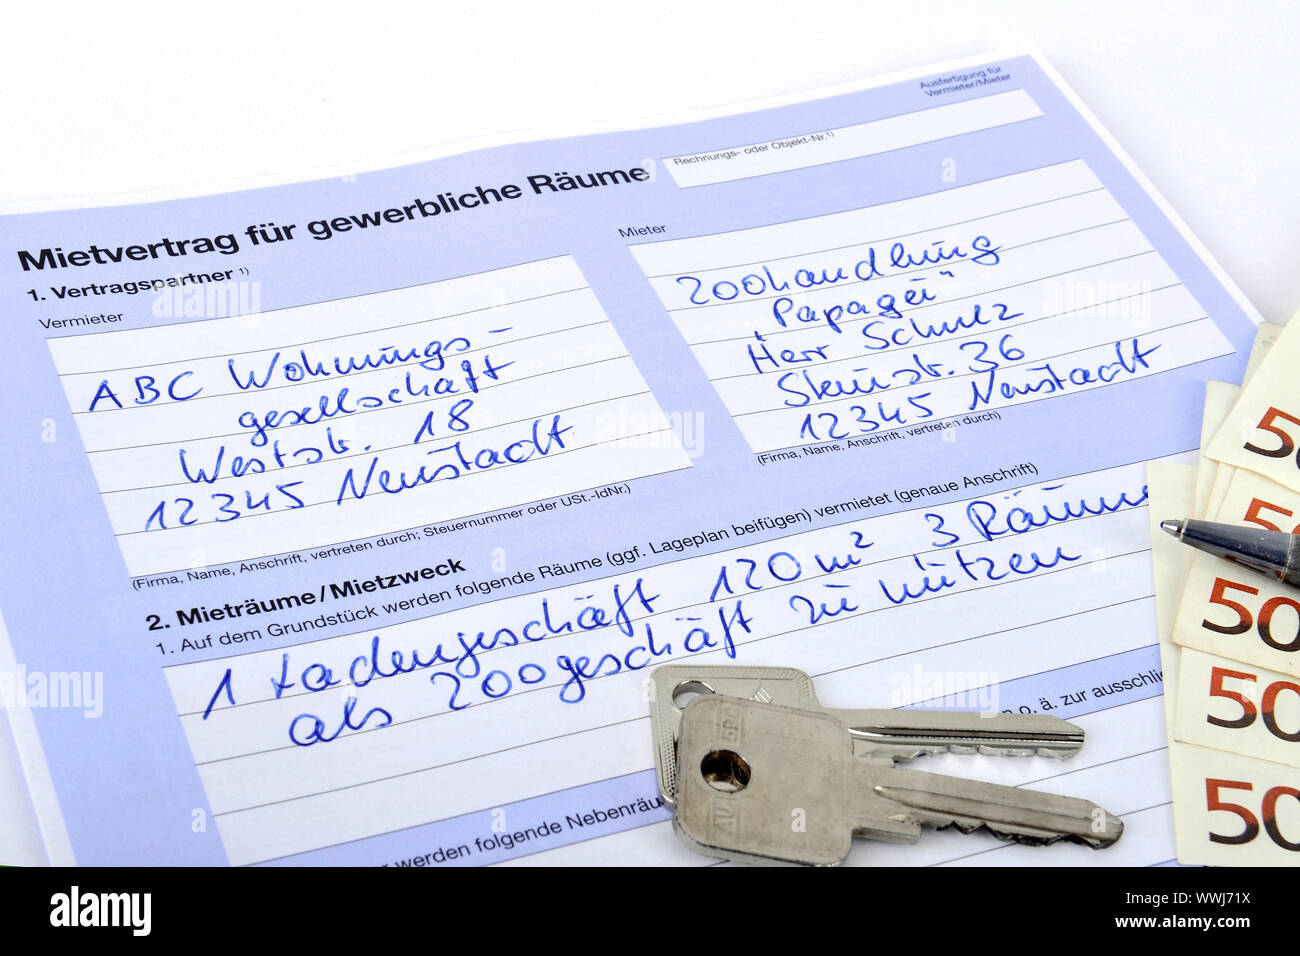 Ausfertigung für
Vermieter/Mieter
Rechnungs- oder Objekt-Nr.1)
Mietvertrag für gewerbliche Räume
1. Vertragspartner 1)
Vermieter
ABC Wohnungs-
gesellschaft
Weststr. 18
12345 Neustadt
(Firma, Name, Anschrift, vertreten durch; Steuernummer oder USt.-IdNr.)
Mieter
Zoohandlung
"Papagei"
Herr Schulz
Steinstr. 36
12345 Neustadt
(Firma, Name, Anschrift, vertreten durch)
2. Mieträume/Mietzweck
1. Auf dem Grundstück werden folgende Räume (ggf. Lageplan beifügen) vermietet (genaue Anschrift)
1 Ladengeschäft 120 m² 3 Räume
als Zoogeschäft zu nützen
o. ä. zur ausschlie
werden folgende Nebenräu
50
50
50
50
alamy
Image ID: WWJ71X
www.alamy.com